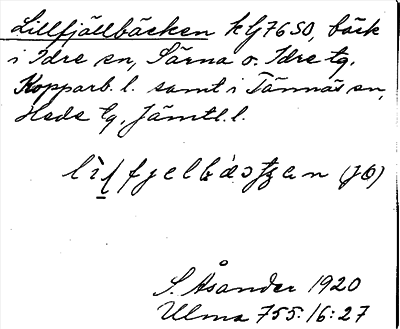 Lillfjällbäcken kG7650, bäck
i Idre sn, Särna o. Idre tg,
Kopparb. l. samt i Tännäs sn,
Hede tg, Jämtl. l.
S. Åsander 1920
Ulma 755:16:27